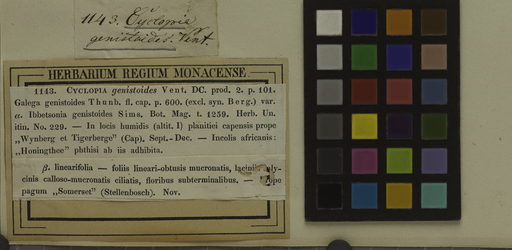 1143. Cyclopia
genistoides. Vent.
HERBARIUM REGIUM MONACENSE.
1143. CYCLOPIA genistoides Vent. DC. prod. 2. p. 101.
Galega genistoides Thunb. fl. cap. p. 600. (excl. syn. Berg.) var.
α. Ibbetsonia genistoides Sims. Bot. Mag. t. 1259. Herb. Un.
itin. No. 229. — In locis humidis (altit. I) planitiei capensis prope
„Wynberg et Tigerberge" (Cap), Sept.- Dec. — Incolis africanis:
„Honingthee" phthisi ab iis adhibita.
β. linearifolia — foliis lineari-obtusis mucronatis,
cinis calloso-mucronatis ciliatis, floribus subterminalibus. —
pagum „Somerset" (Stellenbosch). Nov.